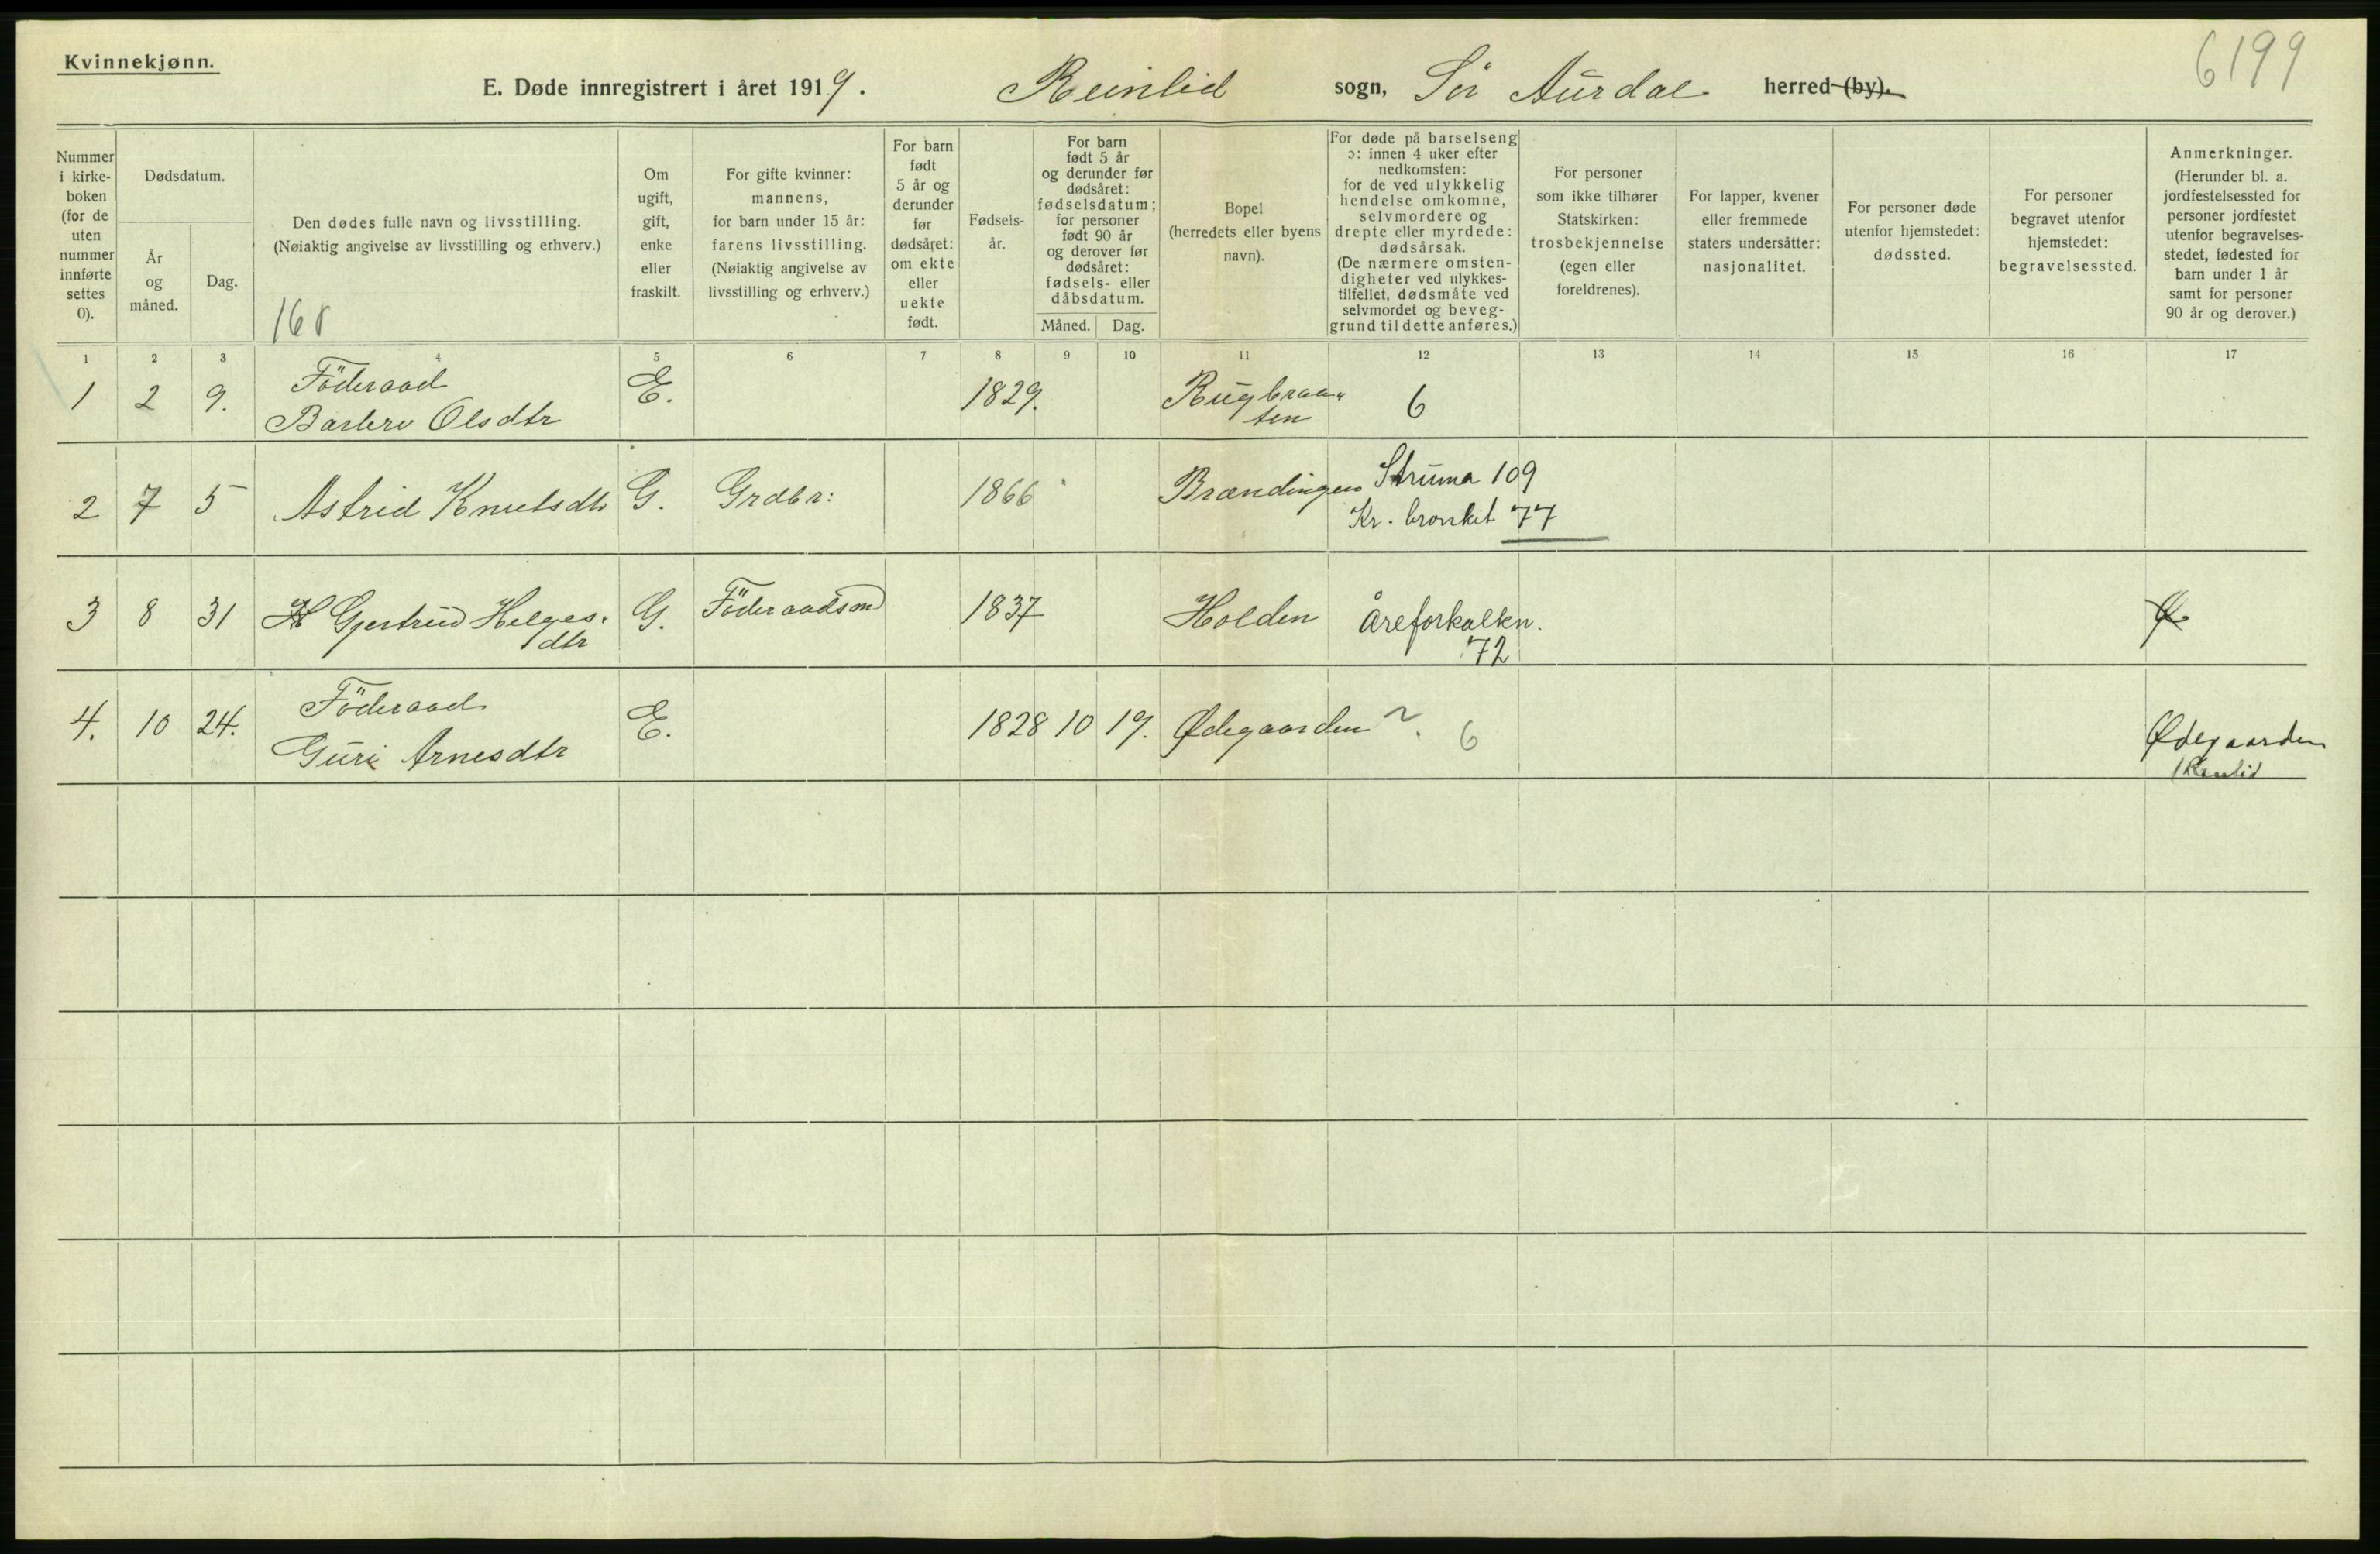 Kvinnekjønn.
6199
E. Døde innregistrert i året 1919. Reinlid sogn, Sör Aurdal herred (by).
Nummer i kirke-boken (for de uten nummer innførte settes 0).
Dødsdatum.
År og måned.
Dag.
Den dødes fulle navn og livsstilling.
(Nøiaktig angivelse av livsstilling og erhverv.)
168
Om ugift, gift, enke eller fraskilt.
For gifte kvinner: mannens, for barn under 15 år: farens livsstilling. (Nøiaktig angivelse av livsstilling og erhverv.)
For barn født 5 år og derunder før dødsåret: om ekte eller uekte født.
Fødsels-år.
For barn født 5 år og derunder før dødsåret: fødselsdatum; for personer født 90 år og derover før dødsåret: fødsels- eller dåbsdatum.
Måned. Dag.
Bopel (herredets eller byens navn).
For døde på barselseng ɔ: innen 4 uker efter nedkomsten: for de ved ulykkelig hendelse omkomne, selvmordere og drepte eller myrdede: dødsårsak. (De nærmere omsten-digheter ved ulykkes-tilfellet, dødsmåte ved selvmordet og beveg-grund til dette anføres.)
For personer som ikke tilhører Statskirken: trosbekjennelse (egen eller foreldrenes).
For lapper, kvener eller fremmede staters undersåtter: nasjonalitet.
For personer døde utenfor hjemstedet: dødssted.
For personer begravet utenfor hjemstedet: begravelsessted.
Anmerkninger. (Herunder bl. a. jordfestelsessted for personer jordfestet utenfor begravelses-stedet, fødested for barn under 1 år samt for personer 90 år og derover.)
1 2 3 4 5 6 7 8 9 10 11 12 13 14 15 16 17
1 2 9. Föderaad E. 1829. Rugbraa„ 6
Barbro Olsdtr ten
2 7 5 Astrid Knutsdtr G. Grdbr: 1866 Brændingen Struma 109
Kr. bronkit 77
3 8 31 Gjertrud Helges. G. Föderaadsm 1837 Holden Åreforkalkn.
dtr 72
4. 10 24. Föderaad E. 1828 10 19. Ødegaarden 6 Ødegaarden
Guri Arnesdtr i Reinlid